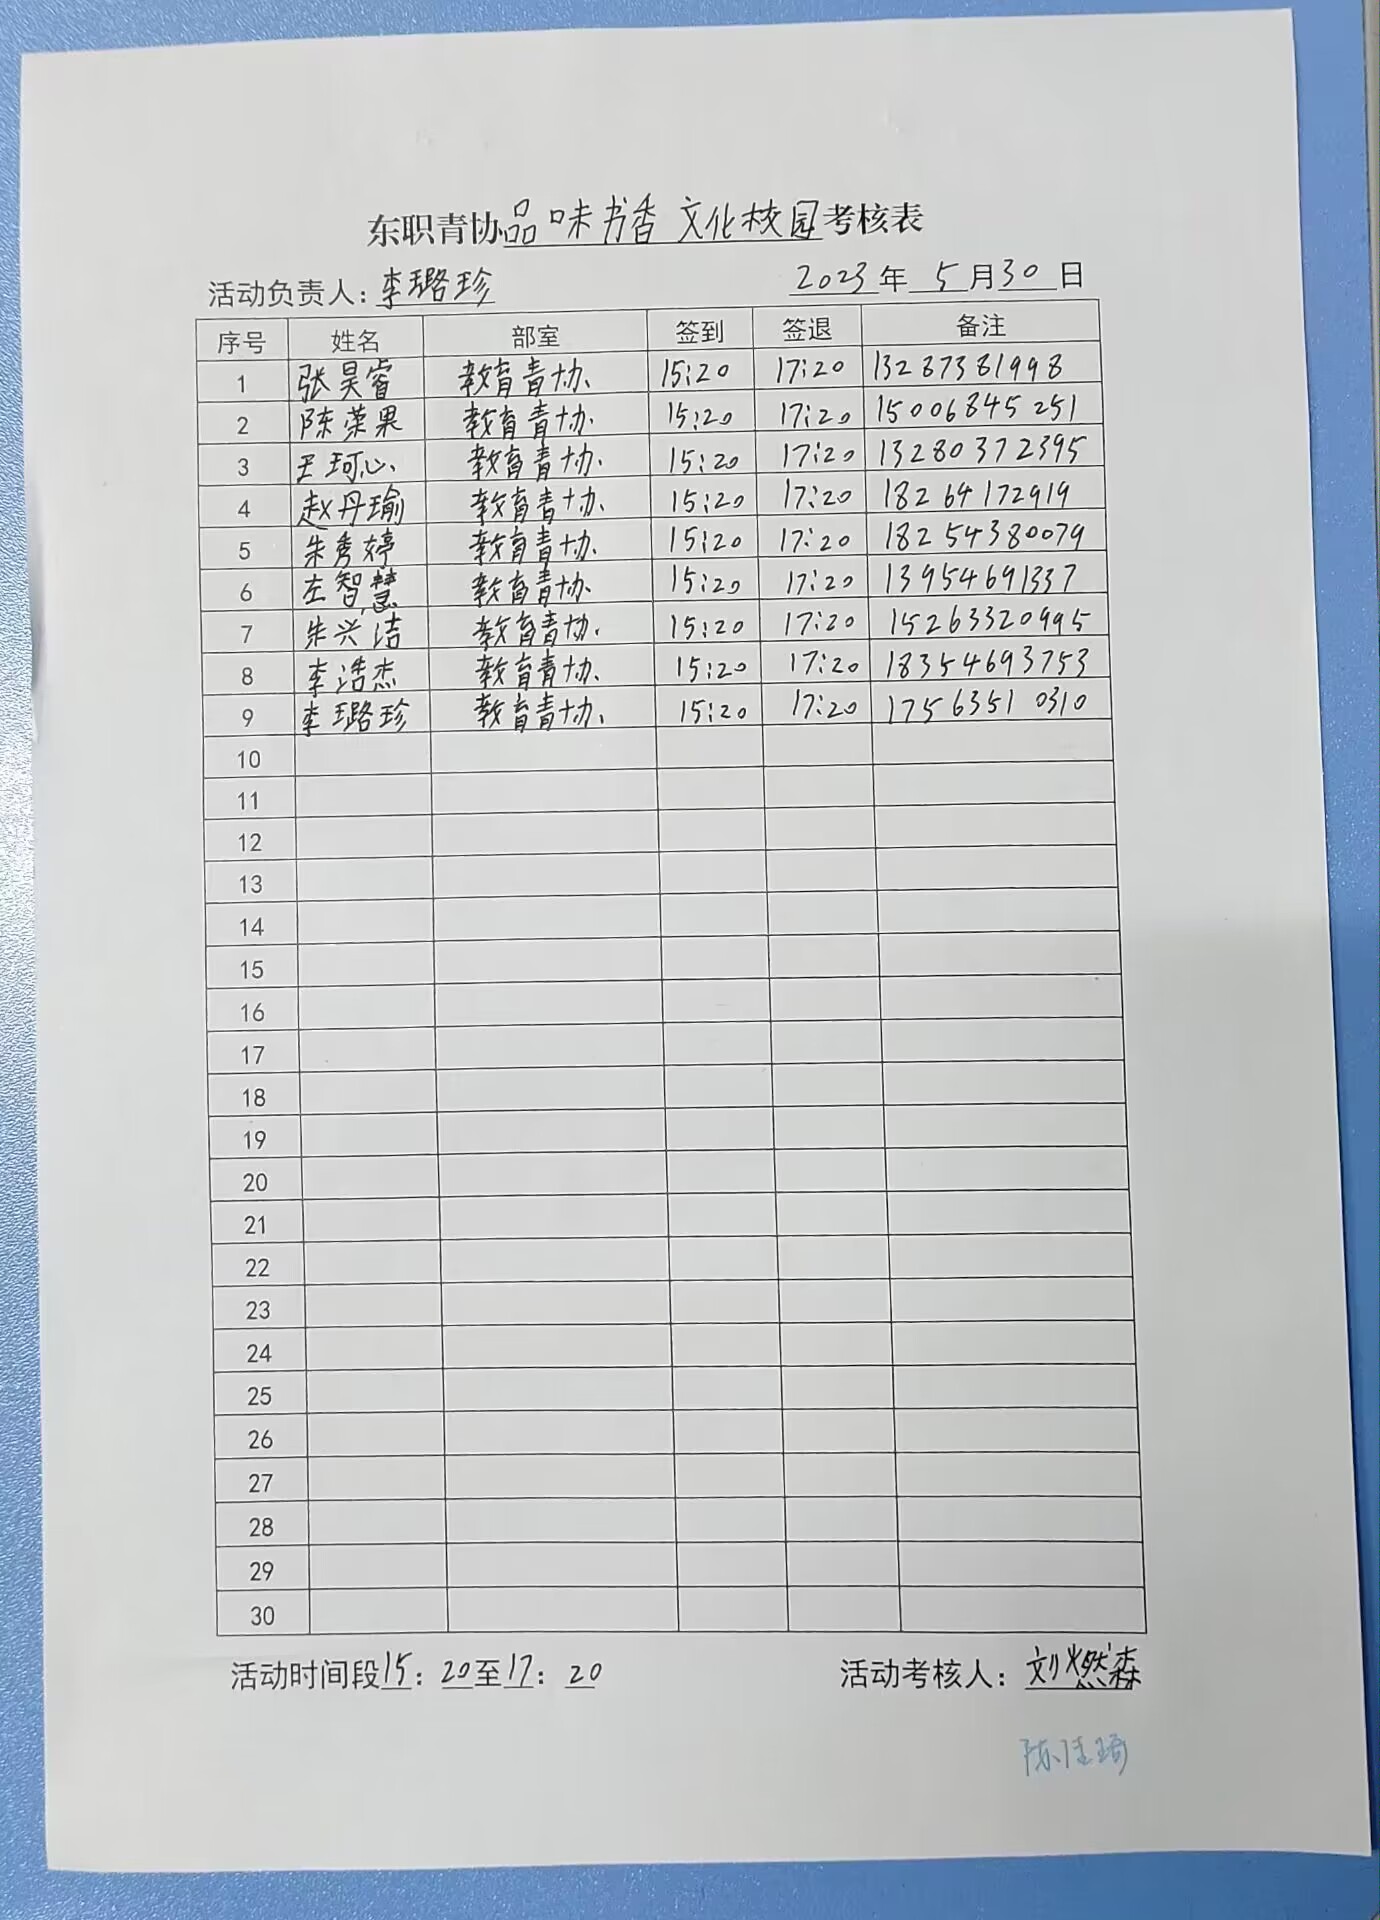 东职青协品味书香 文化校园考核表
活动负责人：李璐珍 2023年 5月30日
序号 姓名 部室 签到 签退 备注
1 张昊睿 教育青协 15:20 17:20 13287381998
2 陈荣果 教育青协 15:20 17:20 15006845251
3 王珂心 教育青协 15:20 17:20 13280372395
4 赵丹瑜 教育青协 15:20 17:20 18264172919
5 朱秀婷 教育青协 15:20 17:20 18254380079
6 左智慧 教育青协 15:20 17:20 13954691337
7 朱兴洁 教育青协 15:20 17:20 15263320995
8 李浩杰 教育青协 15:20 17:20 18354693753
9 李璐珍 教育青协 15:20 17:20 17563510310
10
11
12
13
14
15
16
17
18
19
20
21
22
23
24
25
26
27
28
29
30
活动时间段15：20至17：20 活动考核人：刘燃森
陈佳琦